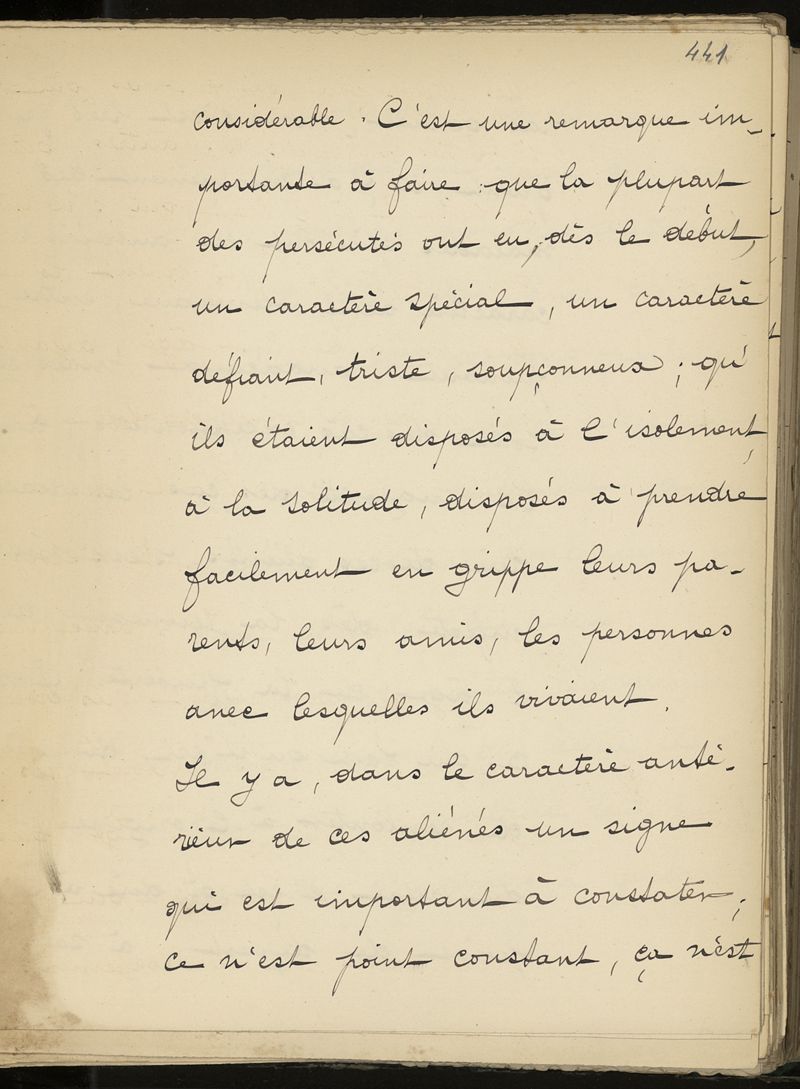 441
considérable. C'est une remarque im-
portante à faire : que la plupart
des persécutés ont eu, dès le début,
un caractère spécial, un caractère
défiant, triste, soupçonneux ; qu'
ils étaient disposés à l'isolement,
à la solitude, disposés à prendre
facilement en grippe leurs pa-
rents, leurs amis, les personnes
avec lesquelles ils vivaient.
Il y a, dans le caractère anté-
rieur de ces aliénés un signe
qui est important à constater ;
ce n'est point constant, ça n'est